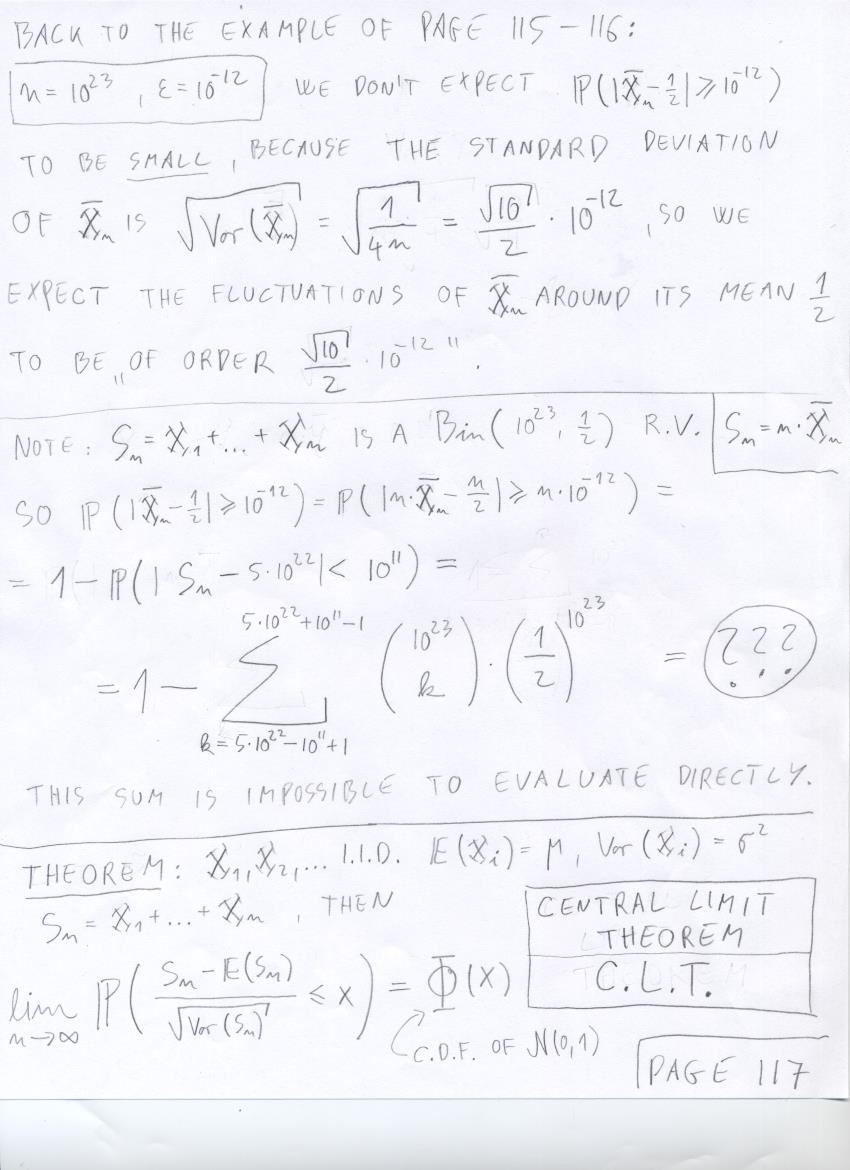 BACK TO THE EXAMPLE OF PAGE 115-116:
n = 10^23, ε = 10^-12 WE DON'T EXPECT ℙ(|X̄_n - 1/2| ≥ 10^-12)
TO BE SMALL, BECAUSE THE STANDARD DEVIATION
OF X̄_n IS √Var(X̄_n) = √(1/4n) = √10/2 · 10^-12, SO WE
EXPECT THE FLUCTUATIONS OF X̄_n AROUND ITS MEAN 1/2
TO BE „OF ORDER √10/2 · 10^-12".
NOTE: S_n = X_1 + ... + X_n IS A Bin(10^23, 1/2) R.V. S_n = n · X̄_n
SO ℙ(|X̄_n - 1/2| ≥ 10^-12) = ℙ(|n·X̄_n - n/2| ≥ n·10^-12) =
= 1 - ℙ(|S_n - 5·10^22| < 10^11) =
= 1 - Σ_{k=5·10^22-10^11+1}^{5·10^22+10^11-1} (10^23 k) · (1/2)^10^23 = ???
THIS SUM IS IMPOSSIBLE TO EVALUATE DIRECTLY.
THEOREM: X_1, X_2, ... I.I.D. 𝔼(X_i) = μ, Var(X_i) = σ^2
S_n = X_1 + ... + X_n, THEN
CENTRAL LIMIT
THEOREM
C.L.T.
lim n→∞ ℙ( (S_n - 𝔼(S_n)) / √Var(S_n) ≤ x ) = Φ(x)
C.D.F. OF N(0,1)
PAGE 117